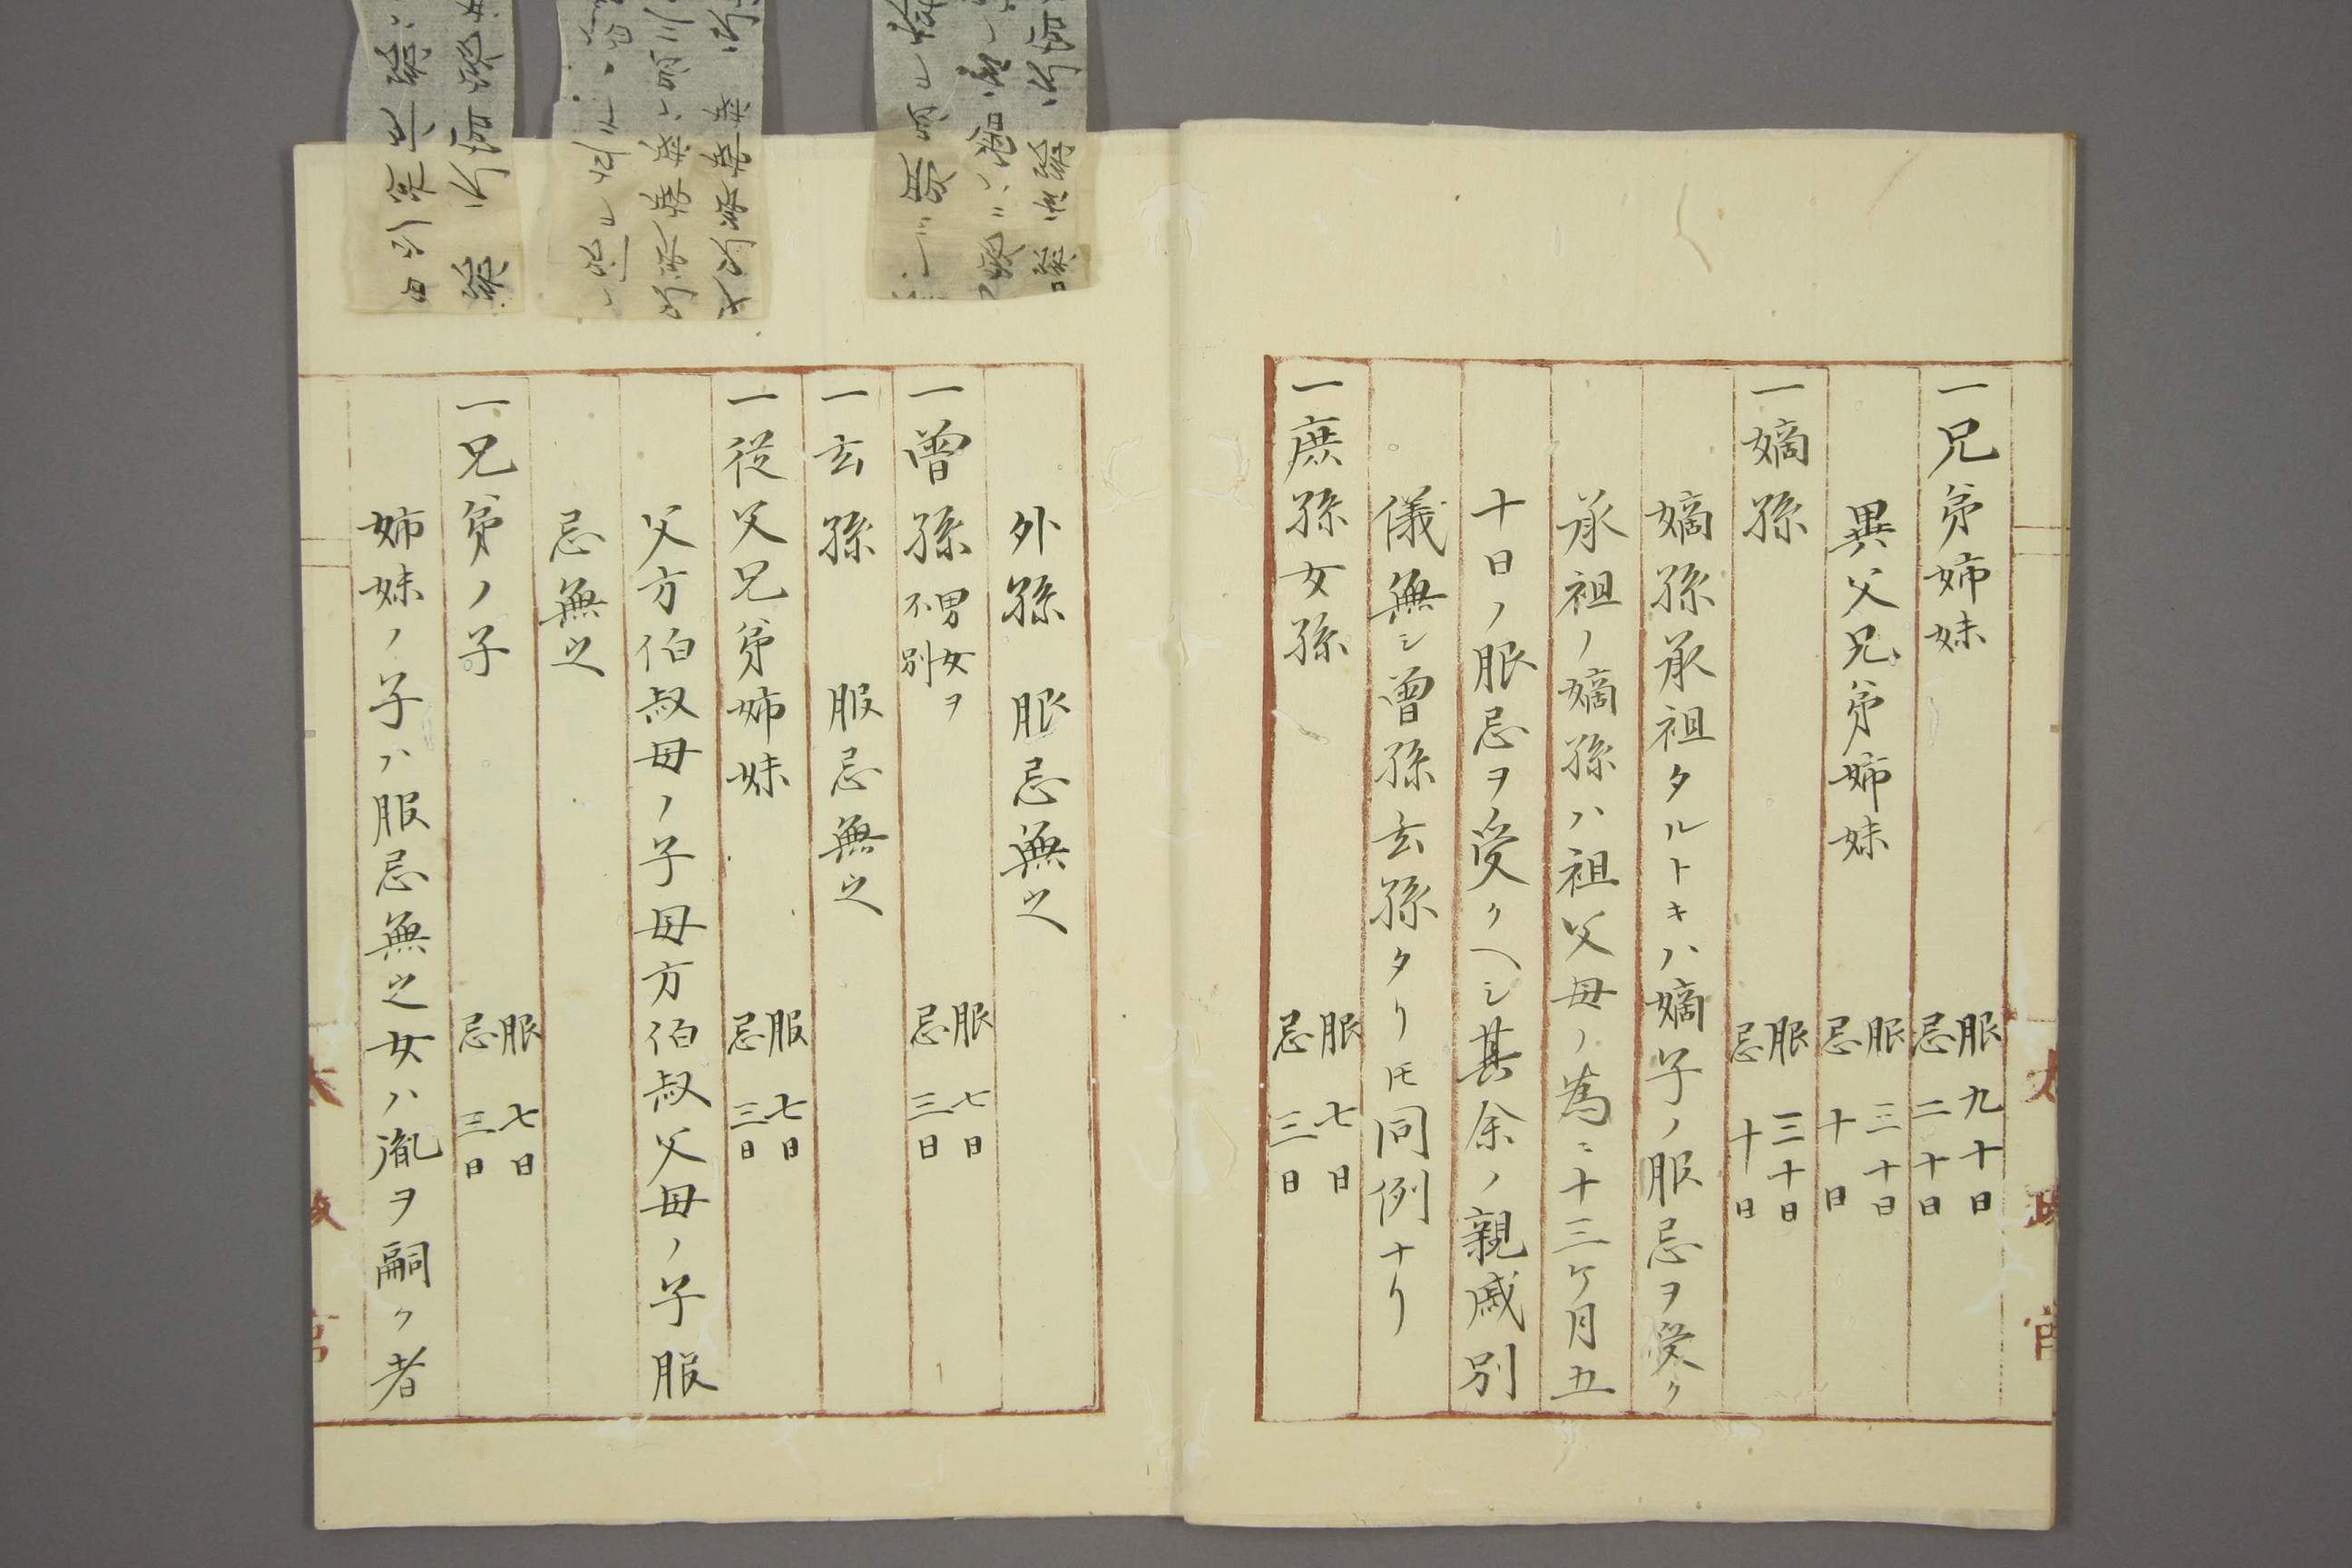 一兄弟姉妹 服九十日 忌二十日
異父兄弟姉妹 服三十日 忌十日
一嫡孫 服三十日 忌十日
嫡孫承祖タルトキハ嫡子ノ服忌ヲ受ク
承祖ノ嫡孫ハ祖父母ノ為ニ十三ケ月五
十日ノ服忌ヲ受クヘシ其余ノ親戚別
儀無シ曽孫玄孫タリ𪜈同例ナリ
一庶孫女孫 服七日 忌三日
太政官
外孫 服忌無之
一曽孫男女ヲ不別 服七日 忌三日
一玄孫 服忌無之
一従父兄弟姉妹 服七日 忌三日
父方伯叔母ノ子母方伯叔父母ノ子服
忌無之
一兄弟ノ子 服七日 忌三日
姉妹ノ子ハ服忌無之女ハ胤ヲ嗣ク者